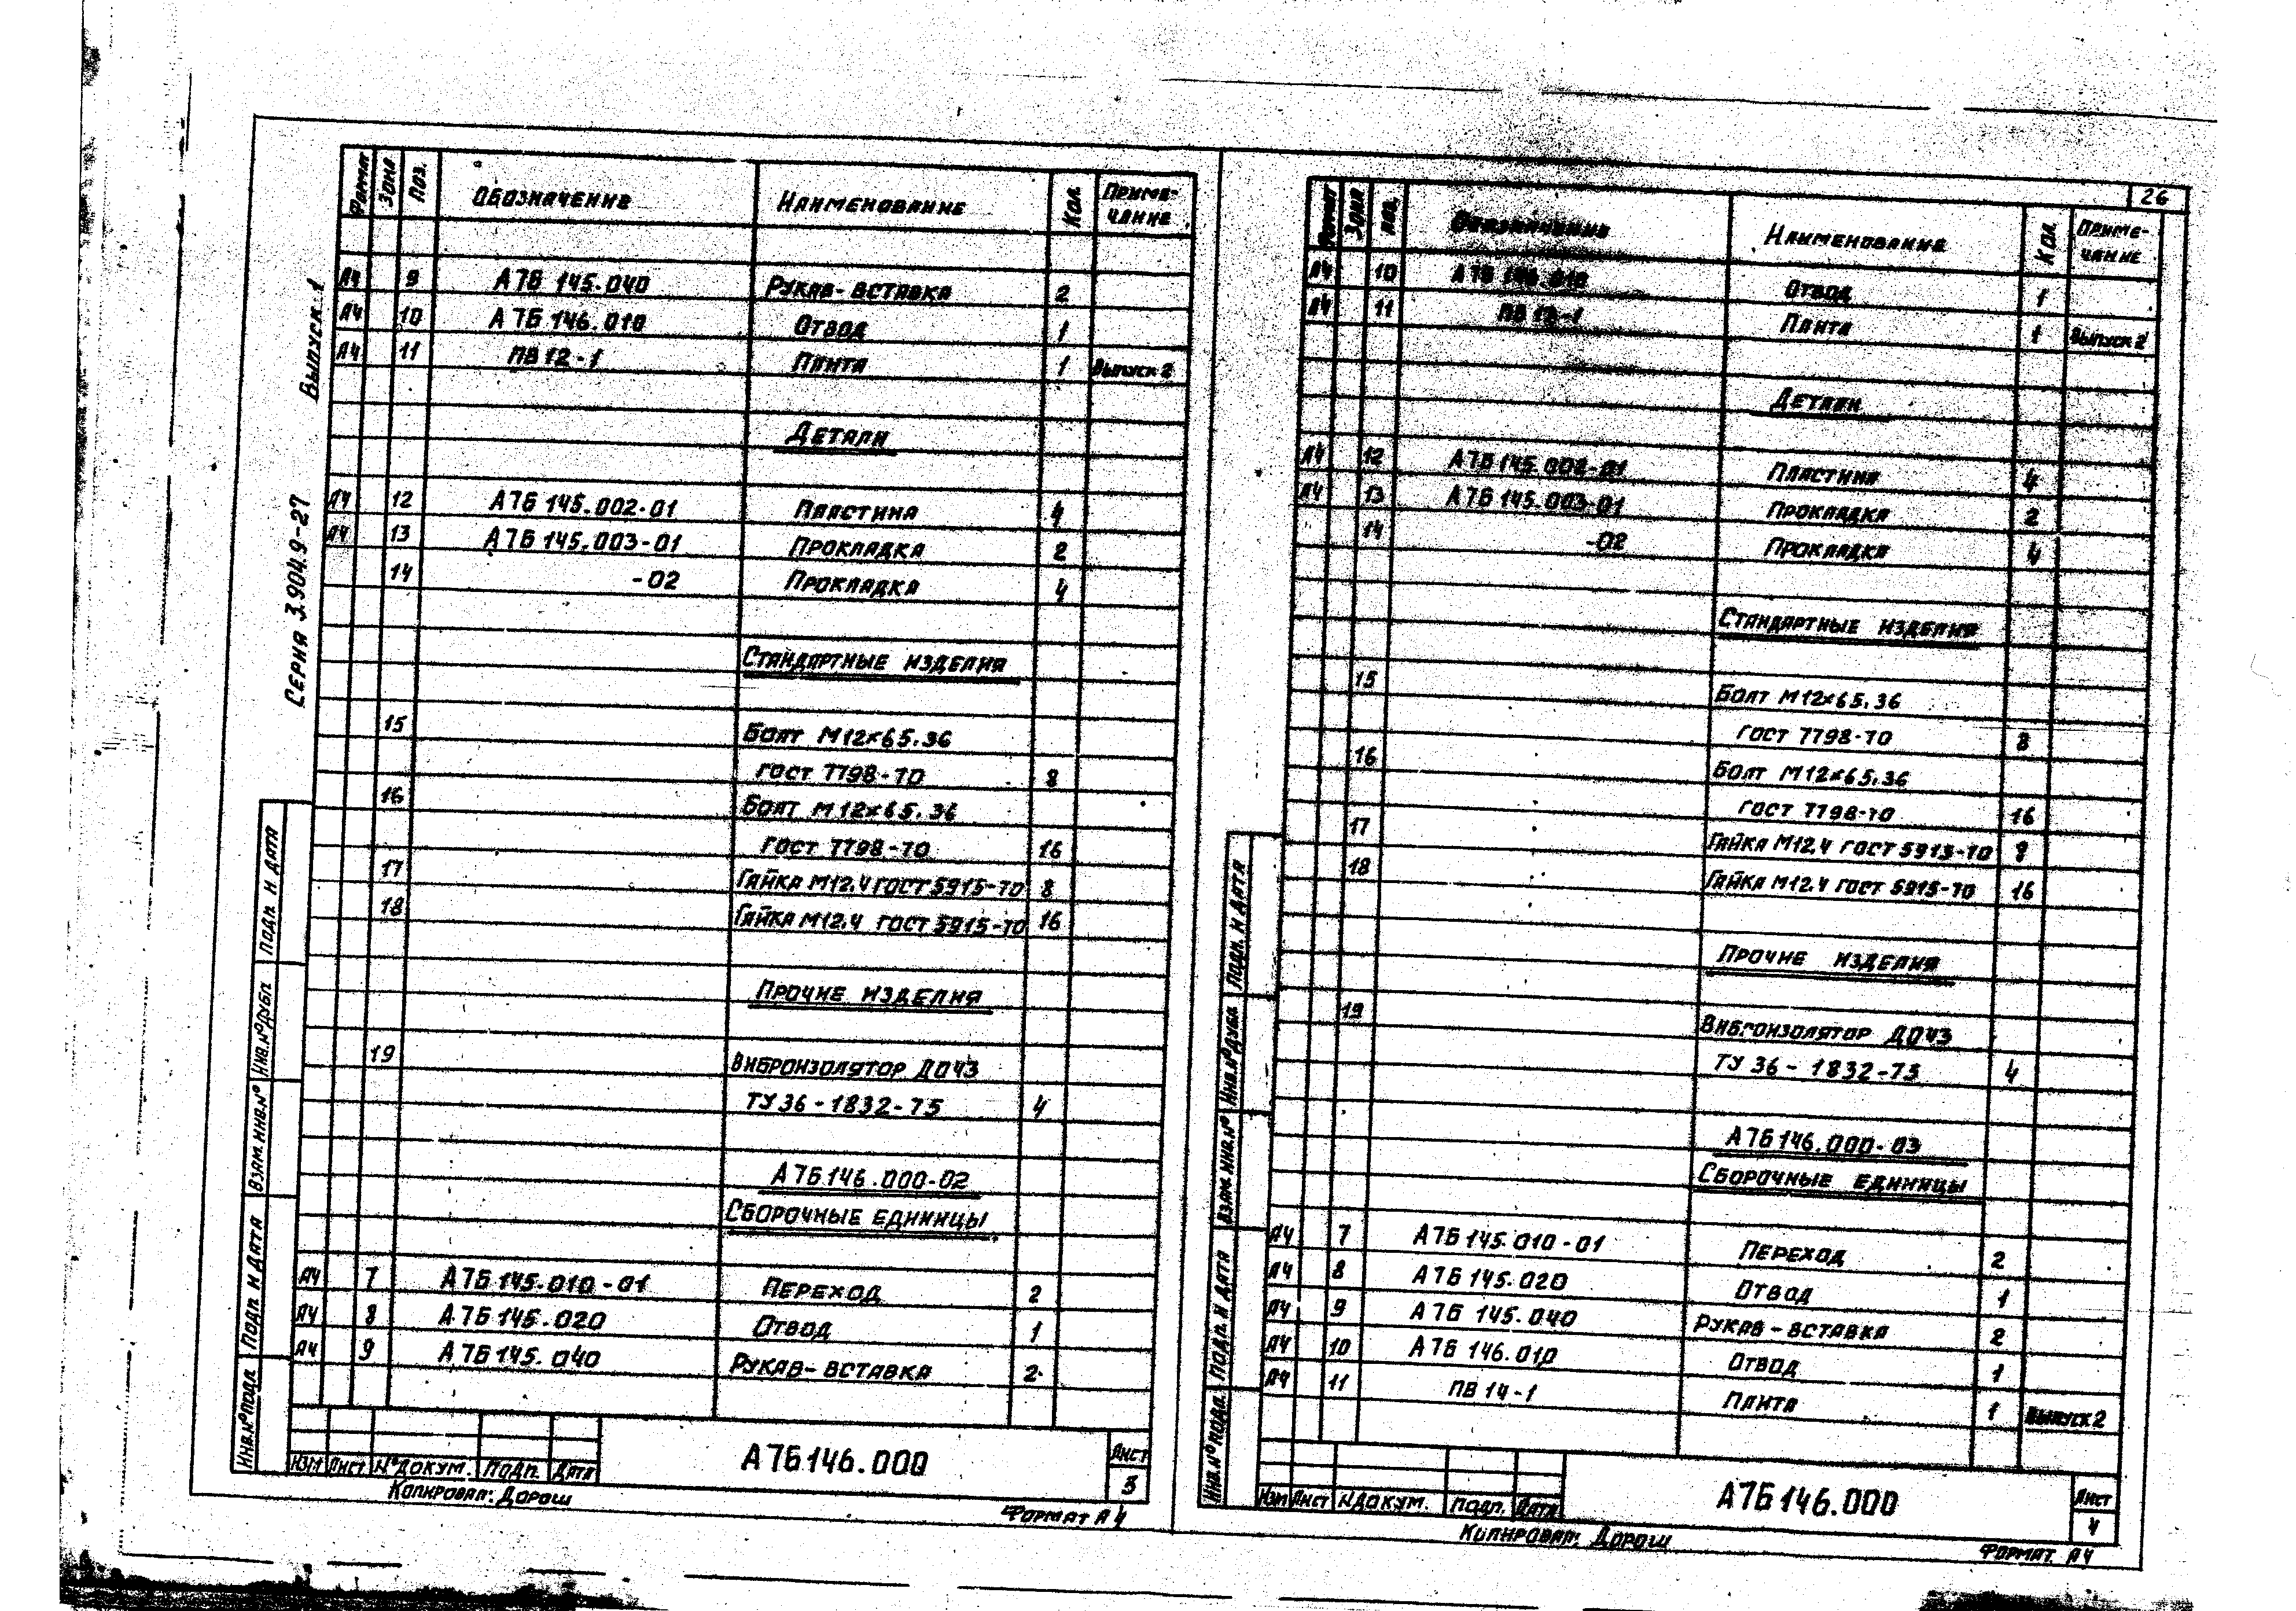 Серия 3.904.9-27 Выпуск 1
Формат Зона Поз. Обозначение Наименование Кол Приме-
чание
А4 9 А7Б 145.040 Рукав-вставка 2
А4 10 А7Б 146.010 Отвод 1
А4 11 ПВ12-1 Плита 1 Выпуск 2
Детали
А4 12 А7Б 145.002-01 Пластина 4
А4 13 А7Б 145.003-01 Прокладка 2
14 -02 Прокладка 4
Стандартные изделия
15 Болт М12×65.36
ГОСТ 7798-70 8
16 Болт М12×65.36
ГОСТ 7798-70 16
17 Гайка М12.4 ГОСТ 5915-70 8
18 Гайка М12.4 ГОСТ 5915-70 16
Прочие изделия
19 Виброизолятор ДО43
ТУ 36-1832-75 4
А7Б146.000-02
Сборочные единицы
А4 7 А7Б 145.010-01 Переход 2
А4 8 А7Б 145.020 Отвод 1
А4 9 А7Б 145.040 Рукав-вставка 2
Инв.№подл. Подп. и дата Взам.инв.№ Инв.№дубл. Подп. и дата
Изм Лист №докум. Подп. Дата
А7Б146.000
Лист
3
Копировал: Дорош
Формат А4
26
Формат Зона Поз. Обозначение Наименование Кол Приме-
чание
А4 10 А7Б 146.010 Отвод 1
А4 11 ПВ 12-1 Плита 1 Выпуск 2
Детали
А4 12 А7Б 145.002-01 Пластина 4
А4 13 А7Б 145.003-01 Прокладка 2
14 -02 Прокладка 4
Стандартные изделия
15 Болт М12×65.36
ГОСТ 7798-70 8
16 Болт М12×65.36
ГОСТ 7798-70 16
17 Гайка М12.4 ГОСТ 5915-70 8
18 Гайка М12.4 ГОСТ 5915-70 16
Прочие изделия
19 Виброизолятор ДО43
ТУ 36-1832-75 4
А7Б146.000-03
Сборочные единицы
А4 7 А7Б 145.010-01 Переход 2
А4 8 А7Б 145.020 Отвод 1
А4 9 А7Б 145.040 Рукав-вставка 2
А4 10 А7Б 146.010 Отвод 1
А4 11 ПВ 14-1 Плита 1 Выпуск 2
Инв.№подл. Подп. и дата Взам.инв.№ Инв.№дубл Подп. и дата
Изм Лист №докум. Подп. Дата
А7Б146.000
Лист
4
Копировал: Дорош
Формат. А4